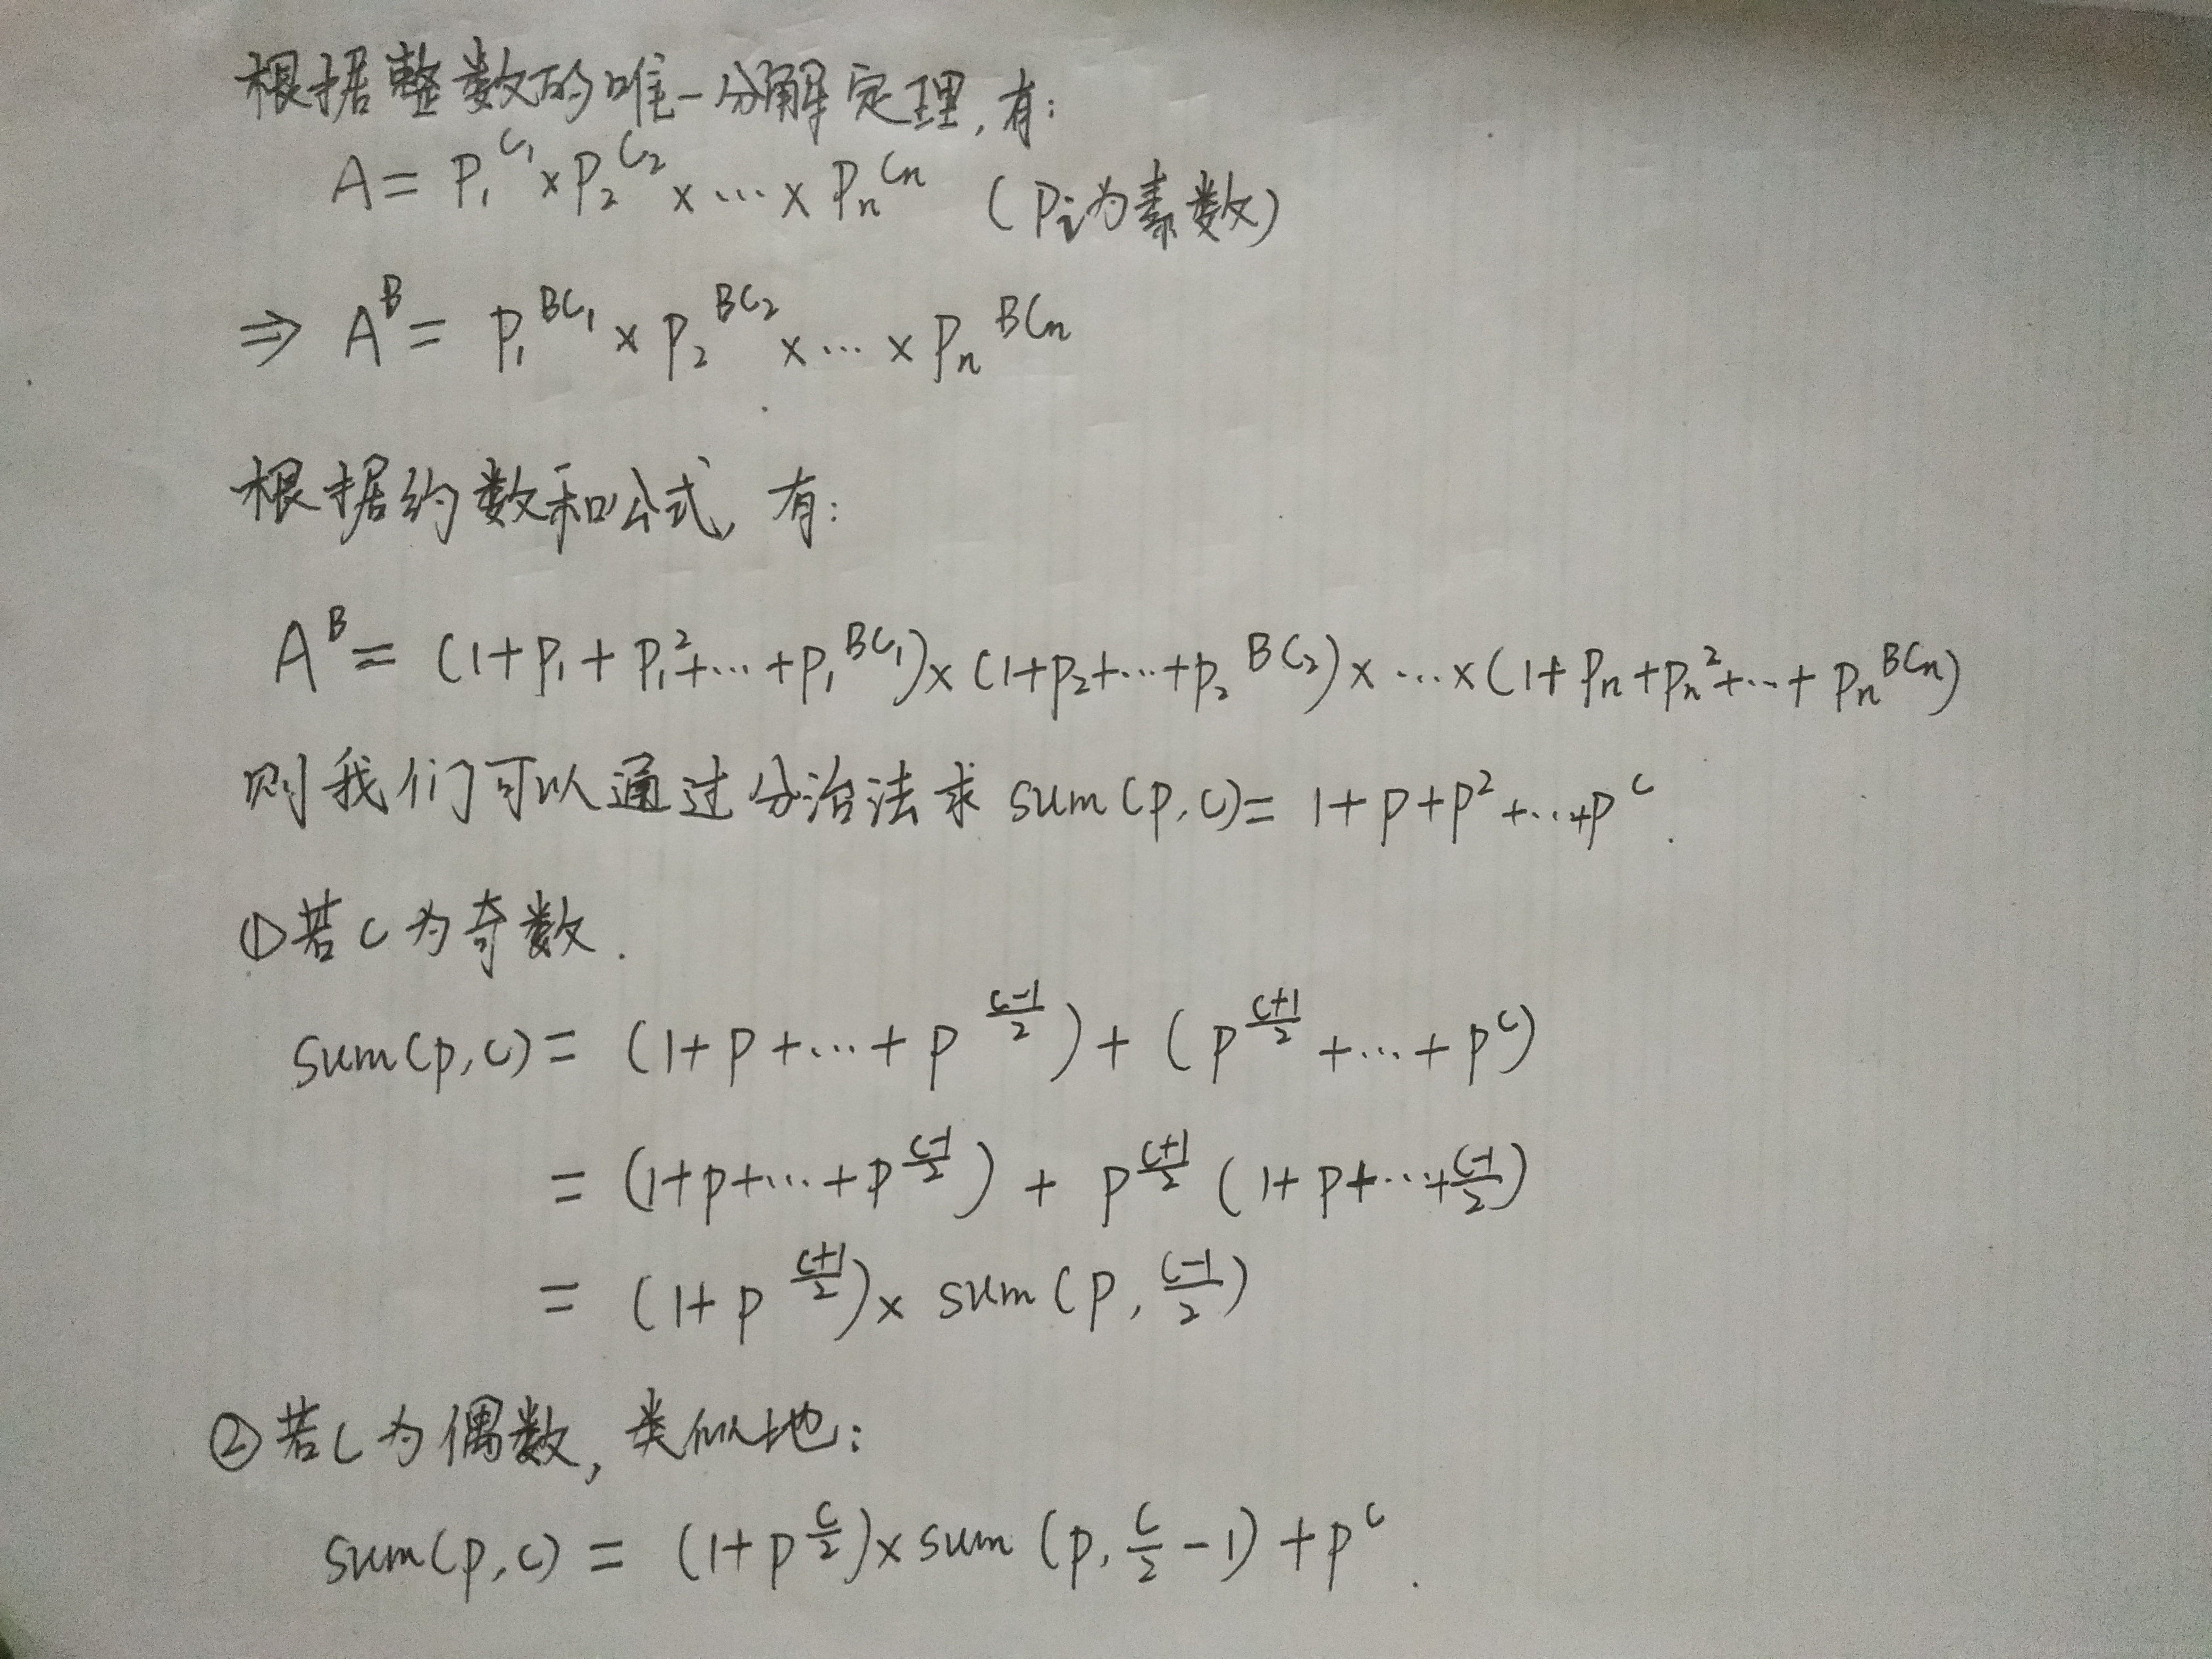 根据整数的唯一分解定理,有:
A = P₁^C₁ × P₂^C₂ × … × Pₙ^Cₙ (Pᵢ为素数)
⇒ A^B = P₁^BC₁ × P₂^BC₂ × … × Pₙ^BCₙ
根据约数和公式,有:
A^B = (1+P₁+P₁²+…+P₁^BC₁)×(1+P₂+…+P₂^BC₂)×…×(1+Pₙ+Pₙ²+…+Pₙ^BCₙ)
则我们可以通过分治法求 sum(P,C)= 1+P+P²+…+P^C.
①若C为奇数.
sum(P,C)= (1+P+…+P^((C-1)/2))+(P^((C+1)/2)+…+P^C)
= (1+P+…+P^((C-1)/2)) + P^((C+1)/2) (1+P+…+(C-1)/2)
= (1+P^((C+1)/2))× sum(P, (C-1)/2)
②若C为偶数,类似地:
sum(P,C) = (1+P^(C/2))×sum (P, C/2 -1)+P^C.